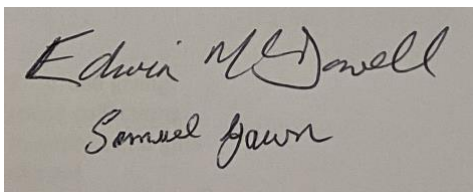 Edwin McDowell
Samuel Hawn